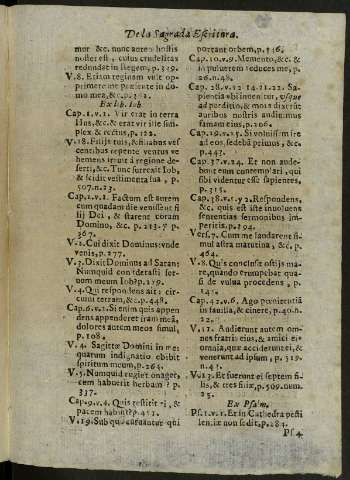 De la Sagrada Escritura.
mur &c. nunc autem hostis
noster est, cuius crudelitas
redundat in Regem, p.339.
V.8. Etiam reginam vult op-
primere me præsente in do-
mo mea, &c. p.
Ex lib. Iob.
Cap.1.v.1. Vir erat in terra
Hus, &c. & erat vir ille sim-
plex & rectus, p.122.
V.18. Filijs tuis, & filiabus ves
centibus repente ventus ve
hemens irruit à regione de-
serti, &c. Tunc surrexit Iob,
& scidit vestimenta sua, p.
507.n.23.
Cap.2.v.1. Factum est autem
cum quadam die venissent fi
lij Dei, & starent coram
Domino, &c. p.213. y p.
367.
V.2. Cui dixit Dominus: vnde
venis, p.277.
V.3. Dixit Dominus ad Satan:
Numquid considerasti ser-
uum meum Iob? p.279.
V.4. Qui respondens ait: cir-
cuiui terram, &c. p.448.
Cap.6.v.2. Si enim quis appen
dens appenderet iram meã,
dolores autem meos simul,
p.108.
V.4. Sagittæ Domini in me:
quarum indignatio ebibit
spiritum meum, p.264.
V.5. Numquid rugiet onager,
cum habuerit herbam? p.
337.
Cap.9.v.4. Quis restitit ei, &
pacem habuit? p.451.
V.13. Sub quo curuantur qui
portant orbem, p.346.
Cap.10.v.9. Memento, &c. &
in puluerem reduces me, p.
26.n.48.
Cap.28.v.12 14.21.22. Sa-
pientia vbi inuenitur, vsque
ad perditio, & mors dixerũt
auribus nostris audiuimus
famam eius, p.206.
Cap.29.v.25. Si voluissim ire
ad eos, sedebã primus, &c.
p.443.
Cap.37.v.24. Et non aude-
bunt eum contemplari, qui
sibi videntur esse sapientes,
p.315.
Cap.38.v.1. y 2. Respondens,
&c. quis est iste inuoluens
sententias sermonibus im-
peritis, p.394.
Vers.7. Cum me laudarent si-
mul astra matutina, &c. p.
464.
V.8. Quis conclusit ostijs ma-
re, quando erumpebat qua-
si de vulua procedens, p.
145.
Cap.42.v.6. Ago pœnitentiã
in fauilla, & cinere, p.40.n.
22.
V.11. Audierunt autem om-
nes fratres eius, & amici ei°
omnia, quæ acciderant ei, &
venerunt ad ipsum, p. 519.
n.41.
V.13. Et fuerunt ei septem fi-
lij, & tres filiæ, p.509.num.
25.
Ex Psalm.
Ps.1.v.1. Et in Cathedra pesti
lentiæ non sedit, p.284.
Ps.4.